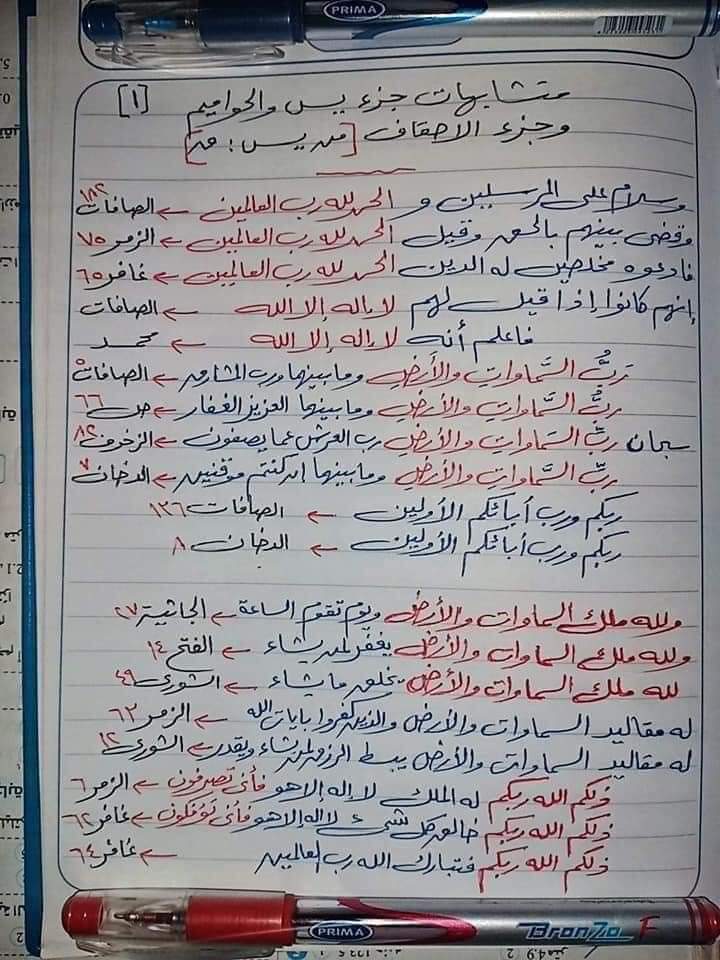 PRIMA
متشابهات جزء يس والحواميم [١]
وجزء الاحقاف [من يس: ق]
وسلام على المرسلين و الحمد لله رب العالمين ← الصافات ١٨٢
وقضى بينهم بالحق وقيل الحمد لله رب العالمين ← الزمر ٧٥
فادعوه مخلصين له الدين الحمد لله رب العالمين ← غافر ٦٥
إنهم كانوا إذا قيل لهم لا إله إلا الله ← الصافات
فاعلم أنه لا إله إلا الله ← محمد
ربُّ السَّماوات والأرض وما بينهما ورب المشارق ← الصافات ٥
ربُّ السَّماوات والأرض وما بينهما العزيز الغفار ← ص ٦٦
سبحان ربِّ السَّماوات والأرض رب العرش عما يصفون ← الزخرف ٨٢
ربِّ السَّماوات والأرض وما بينهما إن كنتم موقنين ← الدخان ٧
ربكم ورب أبائكم الأولين ← الصافات ١٢٦
ربكم ورب أبائكم الأولين ← الدخان ٨
ولله ملك السماوات والأرض ويوم تقوم الساعة ← الجاثية ٢٧
ولله ملك السماوات والأرض يغفر لمن يشاء ← الفتح ١٤
لله ملك السماوات والأرض يخلق ما يشاء ← الشورى ٤٩
له مقاليد السماوات والأرض والذين كفروا بايات الله ← الزمر ٦٣
له مقاليد السماوات والأرض يبسط الرزق لمن يشاء ويقدر ← الشورى ١٢
ذلكم الله ربكم له الملك لا إله إلا هو فأنى تصرفون ← الزمر ٦
ذلكم الله ربكم خالق كل شيء لا إله إلا هو فأنى تؤفكون ← غافر ٦٢
ذلكم الله ربكم فتبارك الله رب العالمين ← غافر ٦٤
PRIMA BronZo F